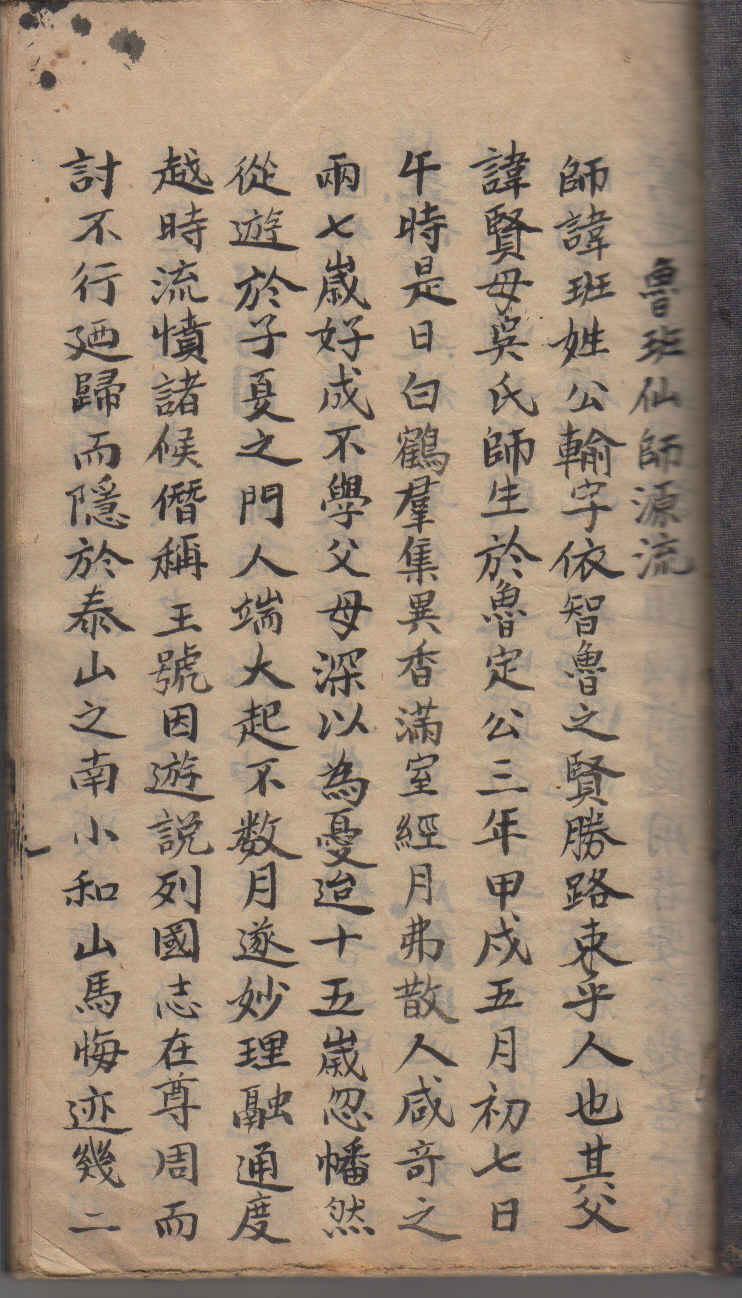 魯班仙師源流
師諱班姓公輸字依智魯之賢勝路東乎人也其父
諱賢母吳氏師生於魯定公三年甲戌五月初七日
午時是日白鶴羣集異香滿室經月弗散人咸竒之
兩七嵗好成不學父母深以為憂迨十五嵗忽幡然
從遊於子夏之門人端大起不数月遂妙理融通度
越時流憤諸候僭稱王號因遊說列國志在尊周而
討不行廼歸而隱於泰山之南小和山馬悔迹幾二